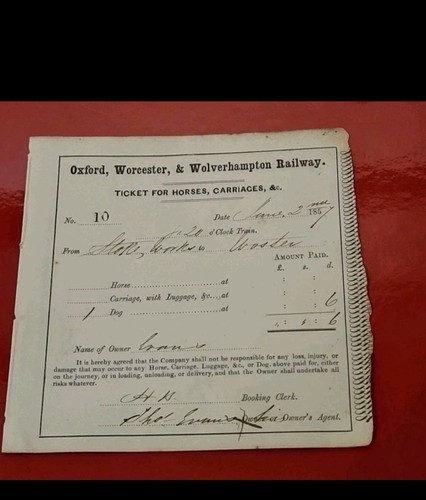 Oxford, Worcester, & Wolverhampton Railway.
TICKET FOR HORSES, CARRIAGES, &c.
No. 10 Date June 2nd 1857
20 o'Clock Train.
From Stoke Works to Woster
AMOUNT PAID.
£. s. d.
Horse at : :
Carriage, with Luggage, &c. at : :
1 Dog at : : 6
: : 6
Name of Owner Evans
It is hereby agreed that the Company shall not be responsible for any loss, injury, or
damage that may occur to any Horse, Carriage, Luggage, &c., or Dog, above paid for, either
on the journey, or in loading, unloading, or delivery, and that the Owner shall undertake all
risks whatever.
Booking Clerk.
Thos Evans Owner's Agent.